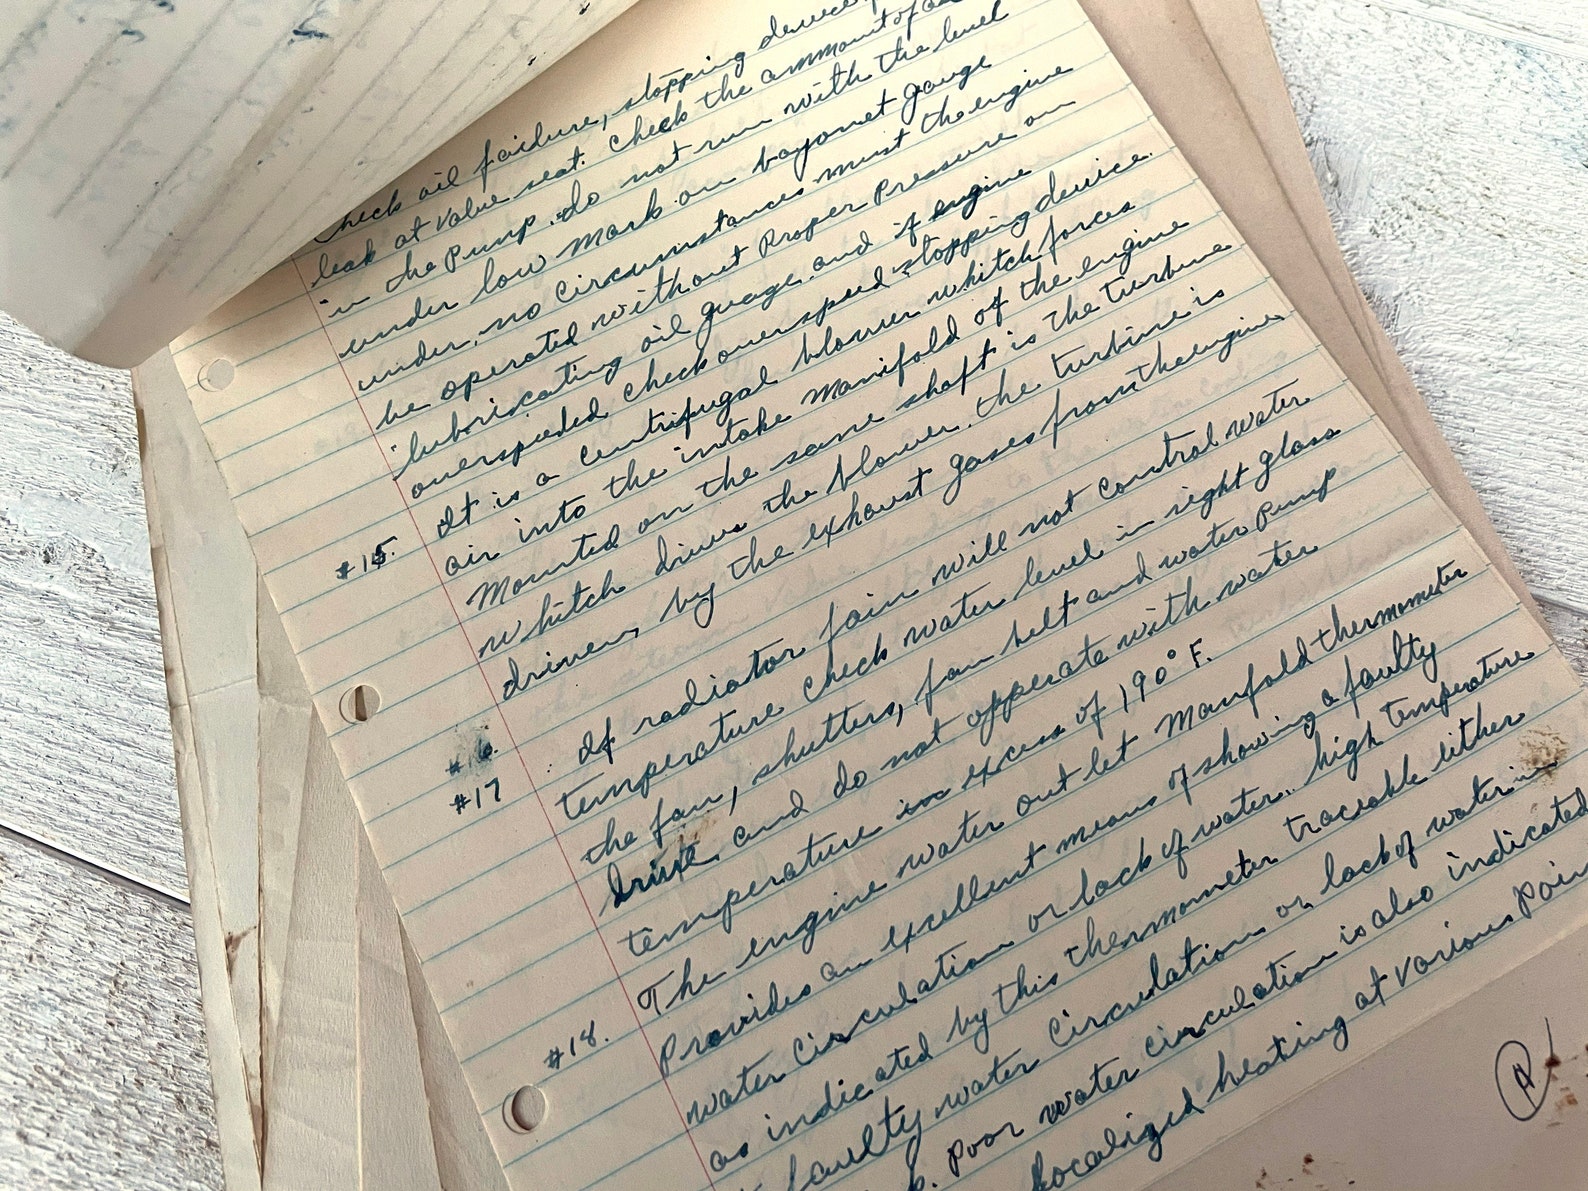 check oil failure, stopping device
leak at valve seat. Check the ammount of
in the Pump. do not run with the level
under low mark on bayonet gauge
under, no circumstances must the engine
be operated without Proper Pressure on
lubricating oil guage. and if engine
overspeeded check overspeed stopping device.
#15. It is a centrifugal blower whitch forces
air into the intake manifold of the engine
Mounted on the same shaft is the turbine
whitch drives the blower. the turbine is
driven, by the exhaust gases from the engine.
#16.
#17 If radiator fain will not control water
temperature check water level in sight glass
the fan, shutters, fan belt and water Pump
drive and do not opperate with water
temperature in excess of 190° F.
#18. The engine water out let Manfold thermometer
Provides an excellent means of showing a faulty
water circulation or lack of water. high temperature
as indicated by this thermometer traceable either
faulty water circulation or lack of water in
Poor water circulation is also indicated
localized heating at various Poin
A